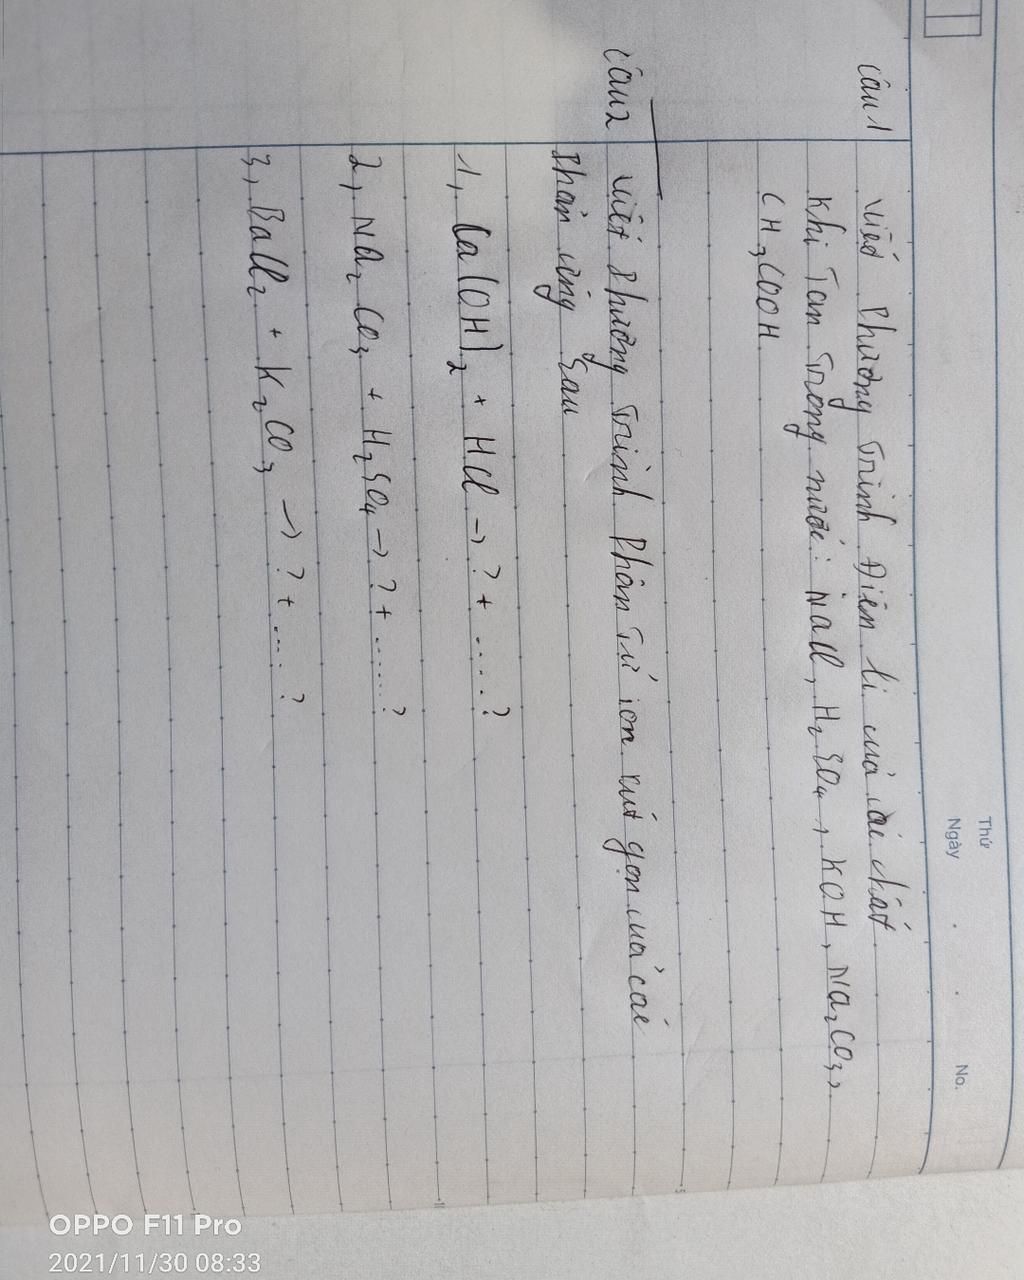 Thứ
Ngày
No.
Câu 1 Viết Phương Trình Điện li của các chất
Khi Tan Trong nước: NaCl, H₂SO₄, KOH, Na₂CO₃,
CH₃COOH
Câu 2 Viết Phương Trình Phân Tử ion rút gọn của các
Phản ứng sau
1, Ca(OH)₂ + HCl → ? + ....?
2, Na₂CO₃ + H₂SO₄ → ? + .....?
3, BaCl₂ + K₂CO₃ → ? + ....?
OPPO F11 Pro
2021/11/30 08:33